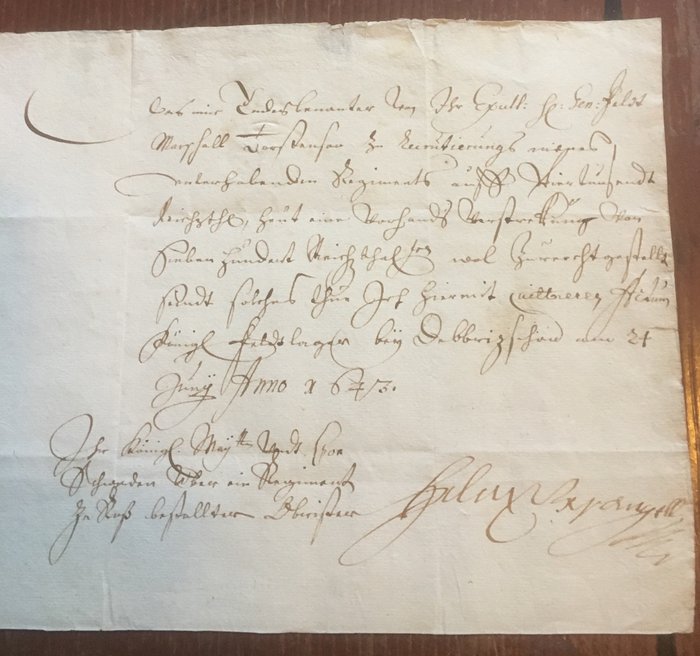 Das mir Endesbenanter von Ihr Excell: H: Gen: Feldt
Marschall Torstenson zu Recruttierungs meines
unterhabenden Regiments auff Viertausendt
Reichsthl, heut eine vorhands Verstreckung von
Sieben Hundert Reichsthalern wol zurecht gestellt
seindt solches thue Ich hiermit quittieren Actum
Königl Feldtlager bey am 24
Juny Anno 1643.
Ihr Königl May:tt Undt Cron
Schweden Uber ein Regiment
zu Roß bestellter Obrister